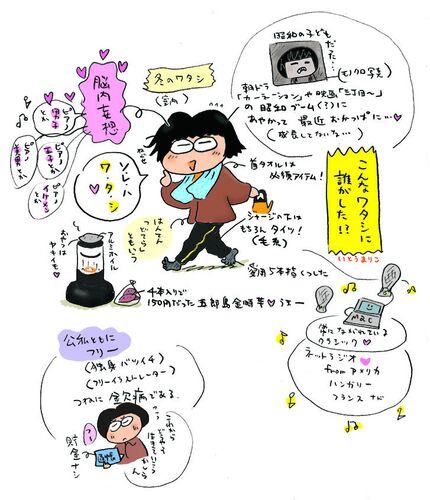 昭和の子ども
だった…
(モノクロ写真)
朝ドラ
「カーネーション」や映画「三丁目〜」
の昭和ブーム(?)に
あやかって 最近おかっぱに…♥
(成長してないな…)
冬のワタシ
(室内)
脳内妄想
ピアノ男子とか
ピアノ王子とか
ピアノ美男とか
ピアノイケメンとか
ソレハ
ワ・タ・シ
首タオルは
必須アイテム!
こんなワタシに
誰がした!?
いとうまりこ
はんてん
「どてら」
ともいう
ジャージの下は
もちろん タイツ!
(毛糸)
愛用5本指くつした
アルミホイル
おやつは
ヤキイモ♥
4本入りで
150円だった五郎島金時芋♥うまー
MAC
常にながれている
クラシック♥
ネットラジオ♥
from アメリカ
ハンガリー
フランス など
公私ともに
フリー
(独身 バツイチ)
(フリーイラストレーター)
つねに金欠病である
これから
どうやって
生きていこう
かしら
通帳
貯金ナシ